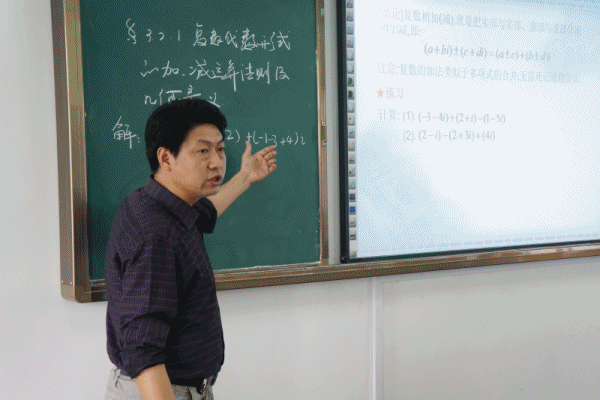 §3.2.1 复数代数形式
的加.减运算法则及
几何意义
解:
2)+(-1-3+4)i
复数相加(减),就是把实部与实部、虚部与虚部分别
(a+bi)±(c+di)=(a±c)+(b±d)i
注意:复数的加法类似于多项式的合并,无需死记
★练习
计算: (1). (-3-4i)+(2+i)-(1-5i)
(2). (2-i)-(2+3i)+(4i)